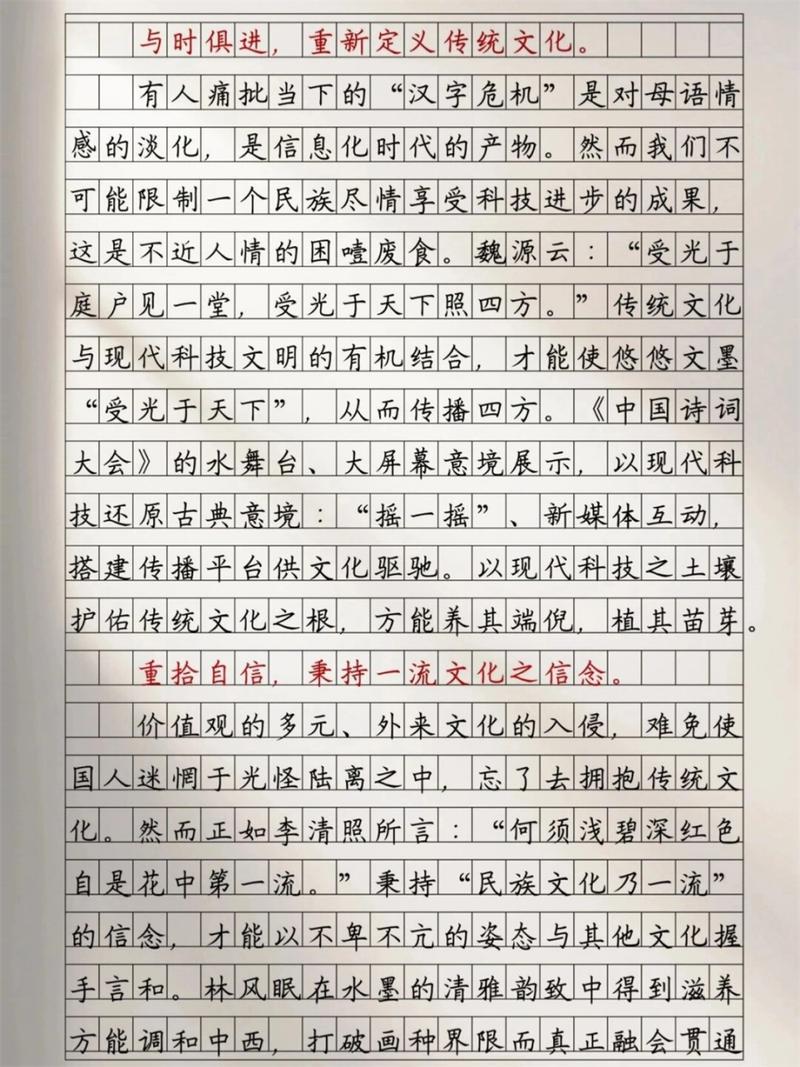 与时俱进，重新定义传统文化。
有人痛批当下的“汉字危机”是对母语情
感的淡化，是信息化时代的产物。然而我们不
可能限制一个民族尽情享受科技进步的成果，
这是不近人情的因噎废食。魏源云：“受光于
庭户见一堂，受光于天下照四方。”传统文化
与现代科技文明的有机结合，才能使悠悠文墨
“受光于天下”，从而传播四方。《中国诗词
大会》的水舞台、大屏幕意境展示，以现代科
技还原古典意境：“摇一摇”、新媒体互动，
搭建传播平台供文化驱驰。以现代科技之土壤
护佑传统文化之根，方能养其端倪，植其苗芽。
重拾自信，秉持一流文化之信念。
价值观的多元、外来文化的入侵，难免使
国人迷惘于光怪陆离之中，忘了去拥抱传统文
化。然而正如李清照所言：“何须浅碧深红色
自是花中第一流。”秉持“民族文化乃一流”
的信念，才能以不卑不亢的姿态与其他文化握
手言和。林风眠在水墨的清雅韵致中得到滋养
方能调和中西，打破画种界限而真正融会贯通